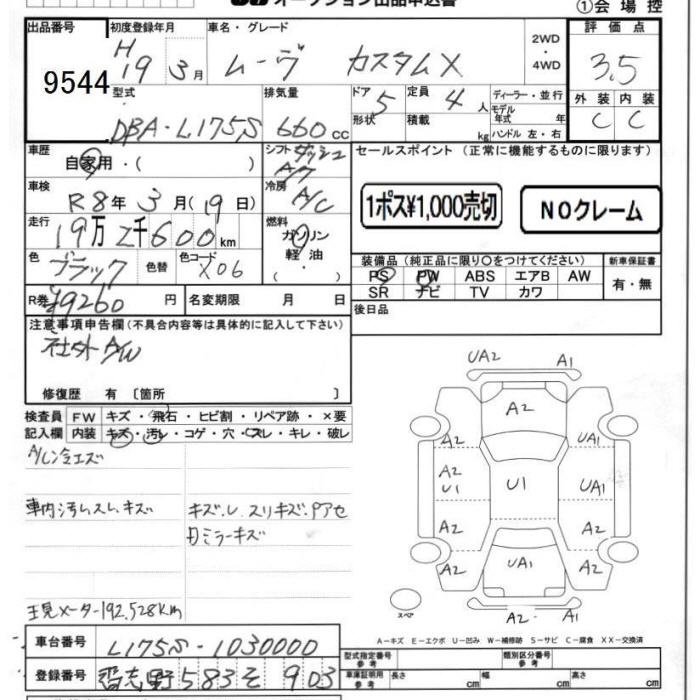 オークション出品申込書
①会場控
出品番号 初度登録年月 車名・グレード 2WD・4WD 評価点
9544
H19 3月 ムーヴ カスタムX 3.5
型式 排気量 ドア 5 定員 4人 ディーラー・並行 外装 内装
DBA-L175S 660cc 形状 積載 kg モデル年式 年 C C
ハンドル 左・右
車歴 自家用・( ) シフト ダッシュA/T セールスポイント (正常に機能するものに限ります)
車検 R8年3月(19日) 冷房 A/C
1ポス¥1,000売切 NOクレーム
走行 19万2千600km 燃料 ガソリン 軽油 ( )
色 ブラック 色替 色コード X06
装備品(純正品に限り○をつけてください) 新車保証書
PS PW ABS エアB AW 有・無
SR ナビ TV カワ
R券 ¥9260円 名変期限 月 日
後日品
注意事項申告欄(不具合内容等は具体的に記入して下さい)
社外A/W
修復歴 有〔箇所 〕
検査員 FW キズ・飛石・ヒビ割・リペア跡・×要
記入欄 内装 キズ・汚レ・コゲ・穴・スレ・キレ・破レ
A/C冷エズ
車内汚レスレキズ
キズ.U.スリキズ.Pアセ
ミラーキズ
現メーター192,528km
UA2 A1
A2
A2 UA1
A2
U1 U1 UA1
A2 A2
UA1
A2 A2
スペア
A2 A1
A-キズ E-エクボ U-凹み W-補修跡 S-サビ C-腐食 XX-交換済
車台番号 L175S-1030000
型式指定番号 参考 類別区分番号 参考
登録番号 習志野583そ903
車庫証明用 参考 長さ cm 幅 cm 高さ cm